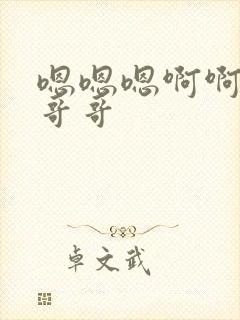 嗯嗯嗯啊啊
哥哥
卓文武